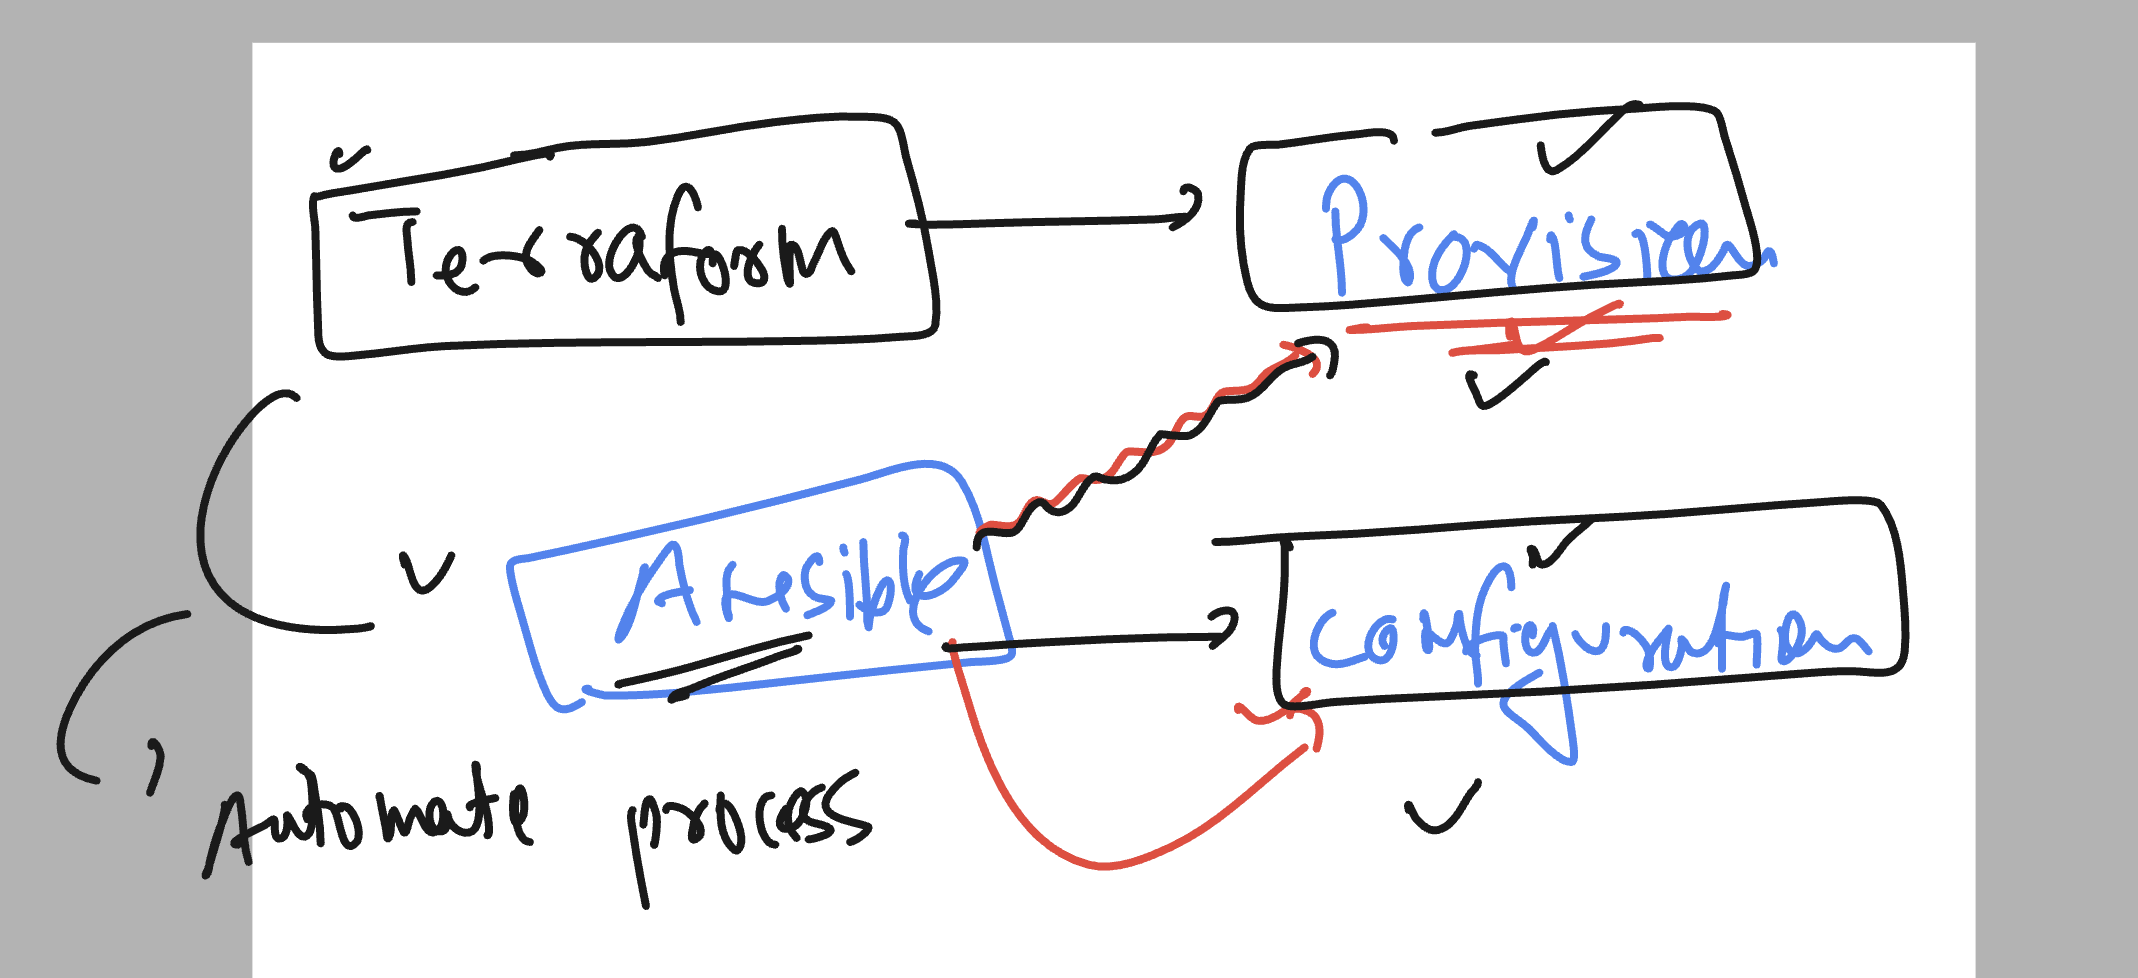 Terraform
Provision
Ansible
Configuration
Automate process